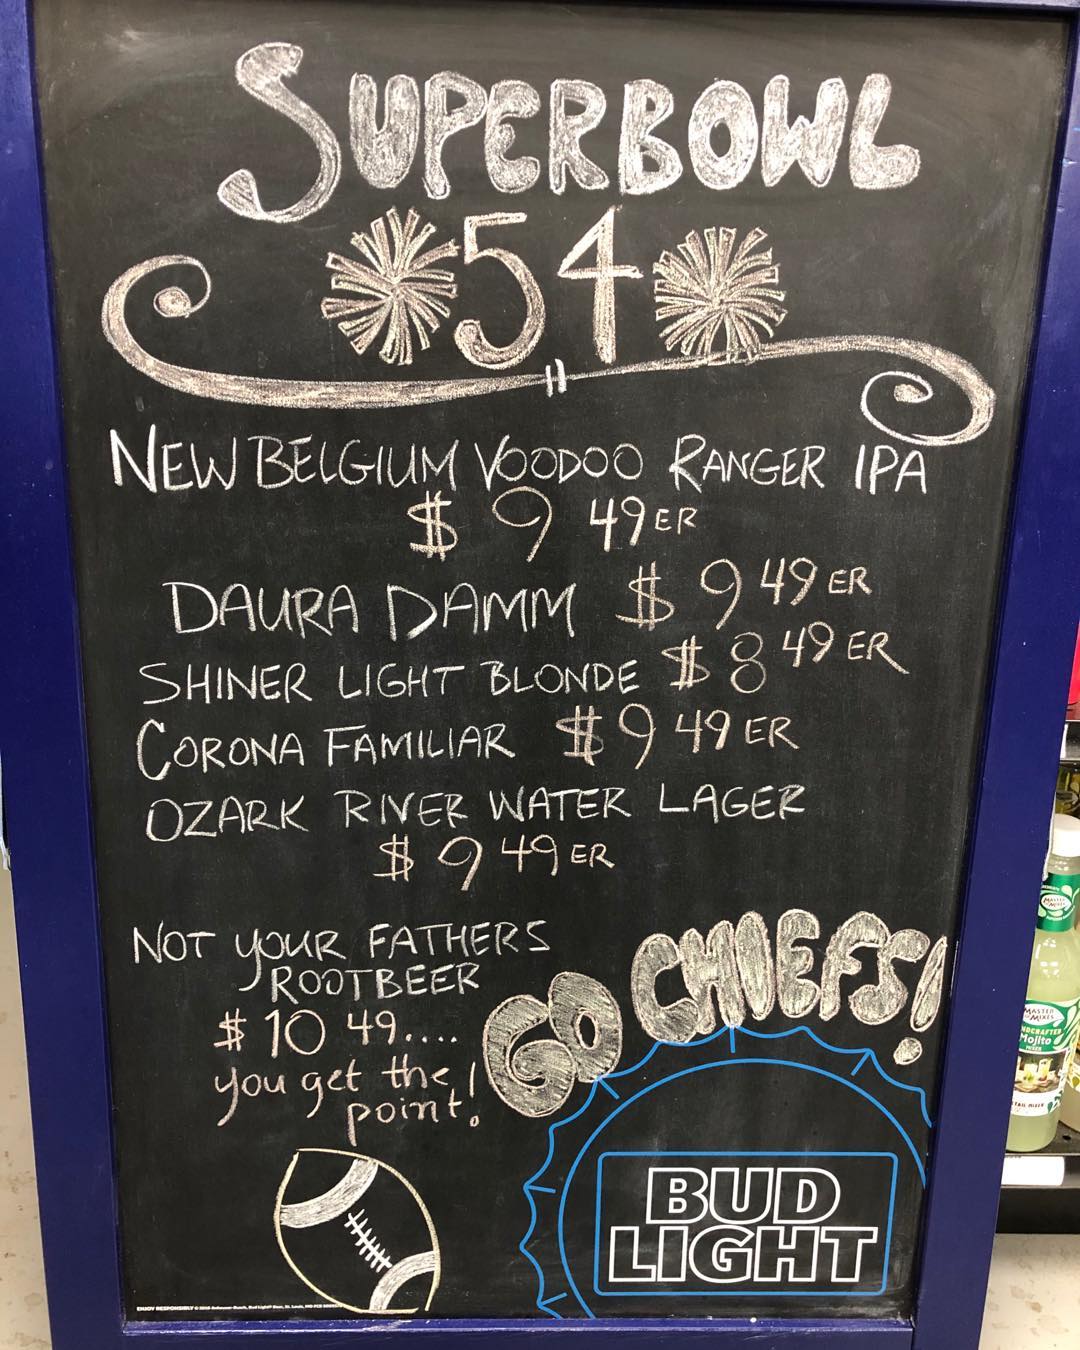 SUPERBOWL
54
NEW BELGIUM VOODOO RANGER IPA
$ 9 49ER
DAURA DAMM $ 9 49ER
SHINER LIGHT BLONDE $ 8 49ER
CORONA FAMILIAR $ 9 49ER
OZARK RIVER WATER LAGER
$ 9 49ER
NOT YOUR FATHERS
ROOTBEER
$ 10 49....
you get the
point!
GO CHIEFS!
BUD
LIGHT
ENJOY RESPONSIBLY
MASTER
OF MIXES
Mojito